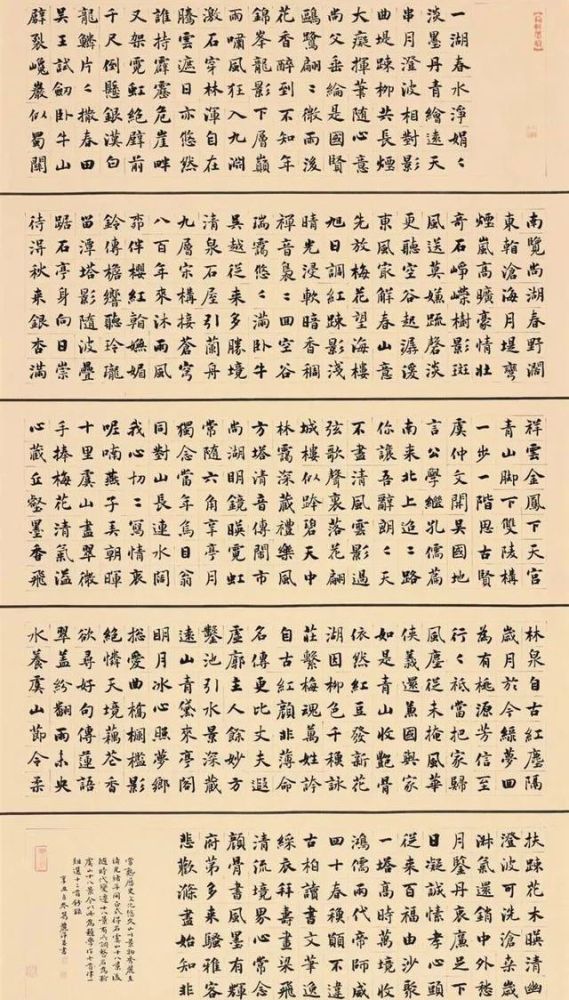 一湖春水淨娟〻
淡墨丹青繪遠天
串月澄波相對影
曲堤踈柳共長煙
大癡揮葉隨心意
尚父垂綸是國賢
鷗鷺翩〻微雨後
花香醉到不知年
錦峯龍影下層巔
雨嘯風狂入九淵
激石穿林渾自在
騰雲遮日亦悠然
誰持霹靂危崖畔
又架霓虹絕壁前
千尺倒懸銀漢白
龍鱗片〻撒春田
吳王試劍卧牛山
劈裂巉巖似蜀關
南覽尚湖春野濶
東翰滄海月堤彎
煙嵐高曠豪情壯
奇石崢嶸樹影斑
風送嫌踈磬淡
更聽空谷起潺湲
東風家解春山意
先放梅花望海樓
旭日調紅踈影淺
晴光浸軟暗香稠
禪音裊〻回空谷
瑞靄悠〻滿卧牛
吳越從來多勝境
清泉石屋引蘭舟
九層宗構接蒼穹
八百年來沐雨風
伴櫻紅翰嫵媚
鈴傳檐響聽玲瓏
留潭塔影隨波疊
踞石亭身向日崇
待得秋來銀杏滿
祥雲金鳳下天宮
青山脚下雙陵構
一步一階思古賢
虞仲文開吳國地
言公學繼孔儒篇
南來北上迢〻路
你讓吾辭朗〻天
不盡清風雲影過
弦歌聲裏落花翩
城樓似跨碧天中
林靄深藏禮樂風
方塔清音傳鬧市
尚湖明鏡映霓虹
常隨六角享亭月
獨念當年烏目翁
同對山長連水闊
我心切〻寫情衷
呢喃燕子弄朝暉
十里虞山盡翠微
手捧梅花清氣溢
心藏丘壑墨香飛
林泉自古紅塵隔
歲月於今綠夢回
為有桃源芳信至
行〻祇當把家歸
風塵從未掩風華
俠義還薰國與家
如是青山收艷骨
依然紅豆發新花
湖因柳色千種詠
莊繫梅魂萬姓誇
自古紅顏非薄命
名傳更比丈夫遐
虛廓主人餘妙方
鑿池引水景深藏
遠山青黛來亭閣
明月冰心照夢鄉
揔愛曲橋欄檻影
絕憐天境藕苍香
欲尋好句傳蓮語
翠蓋紛翻雨未央
水養虞山節令柔
扶踈花木映清幽
澄波可洗滄桑歲
淋氣還銷中外愁
月鑒丹衷廉足下
日凝誠愫孝心頭
從來百福由沙聚
一塔高時萬境收
鴻儒兩代帝師威
四十春種顫不違
古柏讀書文華逸
綵衣拜壽畫梁飛
清流境界心常念
顏骨書風墨可依
府第多來騷雅客
悲歡滌盡始知非
常熟歷史文化悠久山川景物秀麗